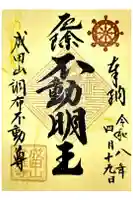 奉納
令和八年
四月十九日
不動明王
成田山調布不動尊